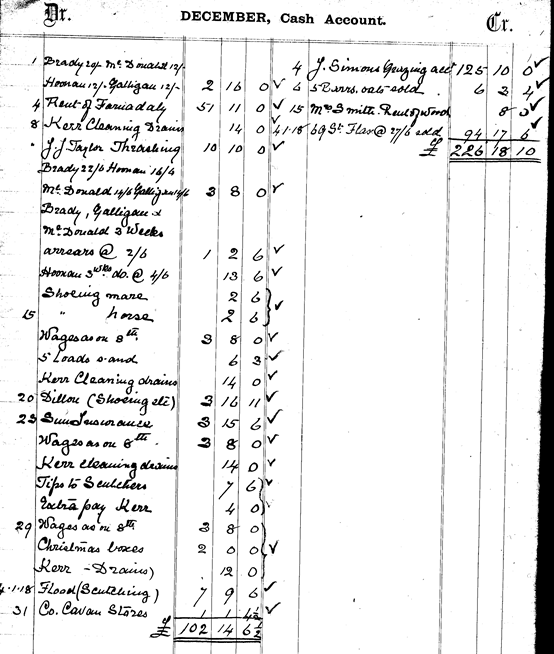 Dr. DECEMBER, Cash Account. Cr.
1 Brady 20/- McDonald 12/-
Hoonan 12/- Galligan 12/- 2 16 0 ✓
4 Rent of Farnadaly 51 11 0 ✓
8 Kerr Cleaning Drains 14 0 ✓
" J.J Taylor Thrashing 10 10 0 ✓
Brady 22/6 Hoonan 16/6
McDonald 14/6 Galligan 14/6 3 8 0 ✓
Brady, Galligan &
McDonald 3 Weeks
arrears @ 2/6 1 2 6 ✓
Hoonan 3 wks do. @ 4/6 13 6 ✓
Shoeing mare 2 6
15 " horse 2 6 ✓
Wages as on 8th. 3 8 0 ✓
5 Loads sand 6 3 ✓
Kerr Cleaning drains 14 0 ✓
20 Dillon (Shoeing etc) 3 16 11 ✓
23 Sun Insurance 3 15 6 ✓
Wages as on 8th. 3 8 0 ✓
Kerr cleaning drains 14 0 ✓
Tips to Scutchers 7 6
Extra pay Kerr 4 0 ✓
29 Wages as on 8th 3 8 0
Christmas boxes 2 0 0 ✓
Kerr - Drains) 12 0
4-1-18 Flood (Scutching) 7 9 6 ✓
31 Co. Cavan Stores 1 1 4½ ✓
£ 102 14 6½
4 J. Simons Grazing acct 125 10 0 ✓
6 5 Brrs. oats sold 6 3 4 ✓
15 Mrs Smith Rent of Wood 8 0 ✓
4-1-18 69 St. Flax @ 27/6 sold 94 17 6 ✓
£ 226 18 10